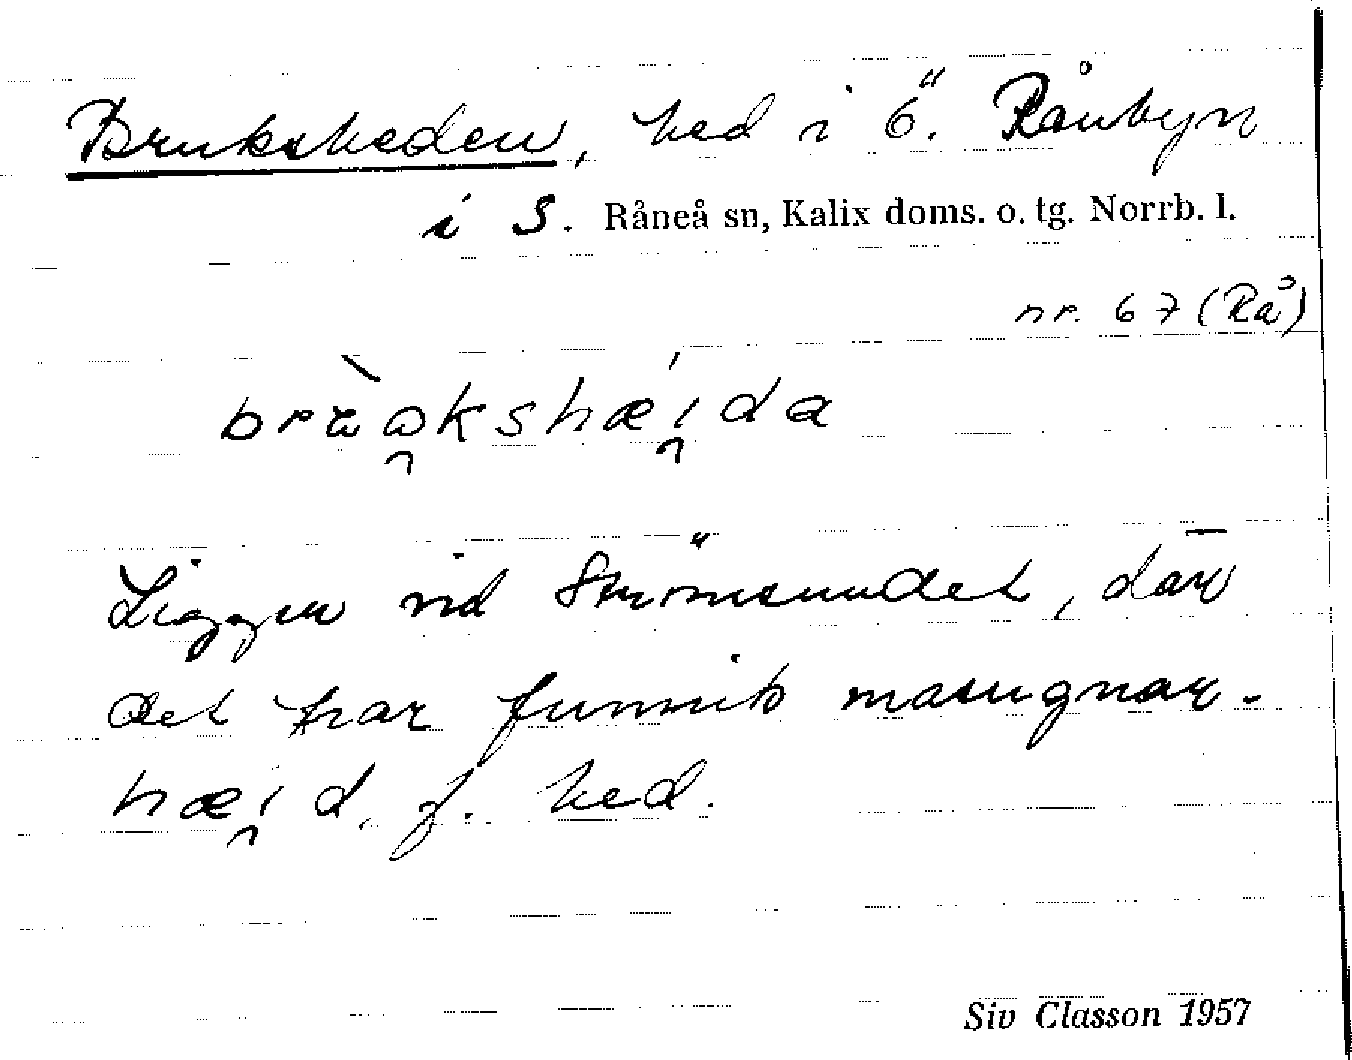 Bruksheden, hed i Ö. Rånbyn
i S. Råneå sn, Kalix doms. o. tg. Norrb. l.
nr. 67 (Rå)
Ligger vid Strömsundet, där
det har funnits masugnar.
hæi̯d, f. hed.
Siv Classon 1957